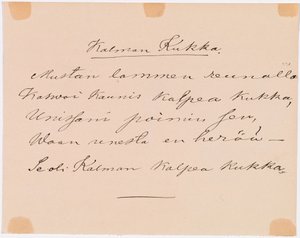 Kalman Kukka.
Mustan lammen reunalla
Katwoi Kaunis Kalpea Kukka,
Unissani poimin sen,
Waan unesta en herää —
Se oli Kalman Kalpea Kukka.